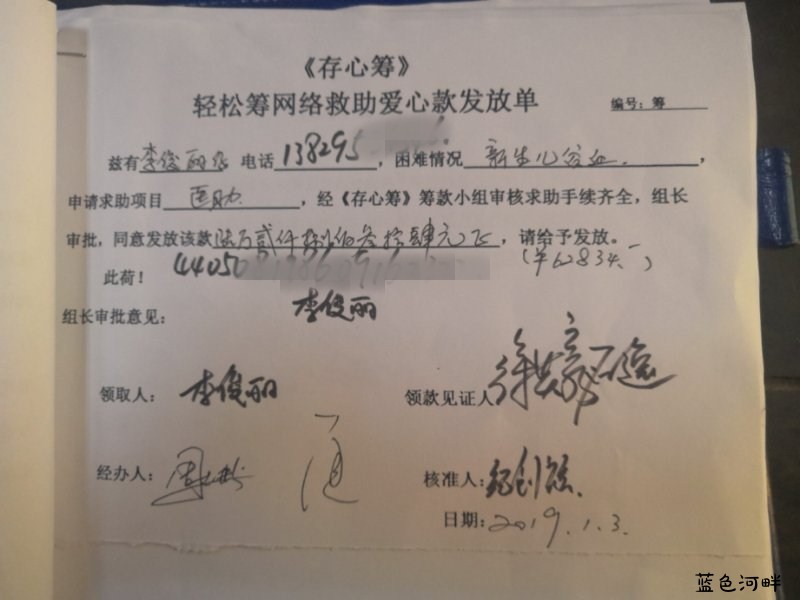 《存心筹》
轻松筹网络救助爱心款发放单
编号：筹
兹有李俊丽 电话138295，困难情况 新生儿，
申请求助项目 医助，经《存心筹》筹款小组审核求助手续齐全，组长
审批，同意发放该款陆万贰仟捌佰叁拾肆元正，请给予发放。
(￥62834.一)
此荷！
4405
组长审批意见：
李俊丽
领取人：李俊丽
领款见证人
经办人：
核准人：
日期：2019.1.3.
蓝色河畔